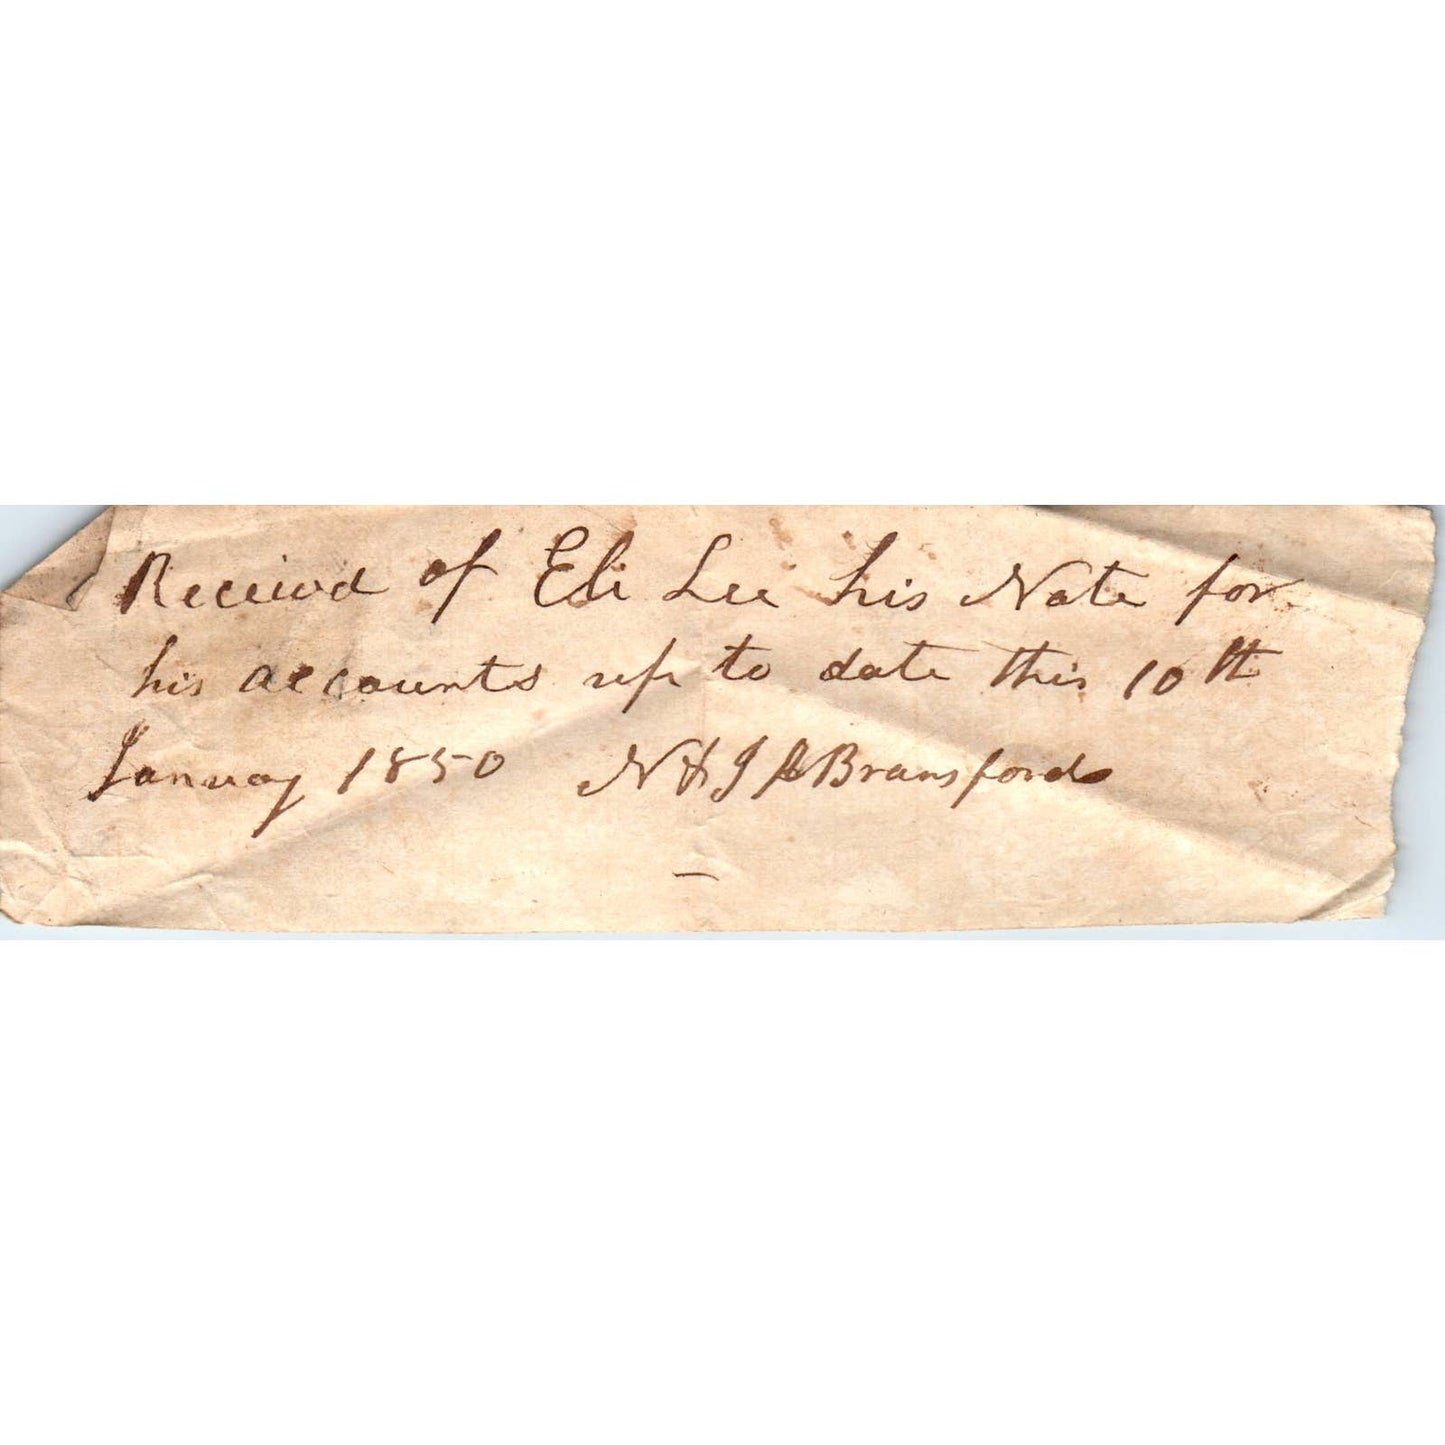 Received of Eli Lee his Note for
his accounts up to date this 10th
January 1850 N & J Bransford